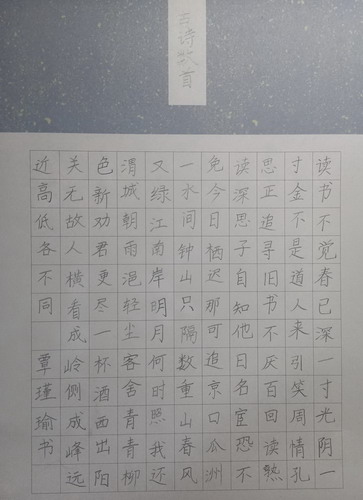 古诗数首
读书不觉春已深一寸光阴一
寸金不是道人来引笑周情孔
思正追寻旧书不厌百回读熟
读深思子自知他日名宦恐不
免今日栖迟那可追京口瓜洲
一水间钟山只隔数重山春风
又绿江南岸明月何时照我还
渭城朝雨浥轻尘客舍青青柳
色新劝君更尽一杯酒西出阳
关无故人横看成岭侧成峰远
近高低各不同 覃瑾瑜书